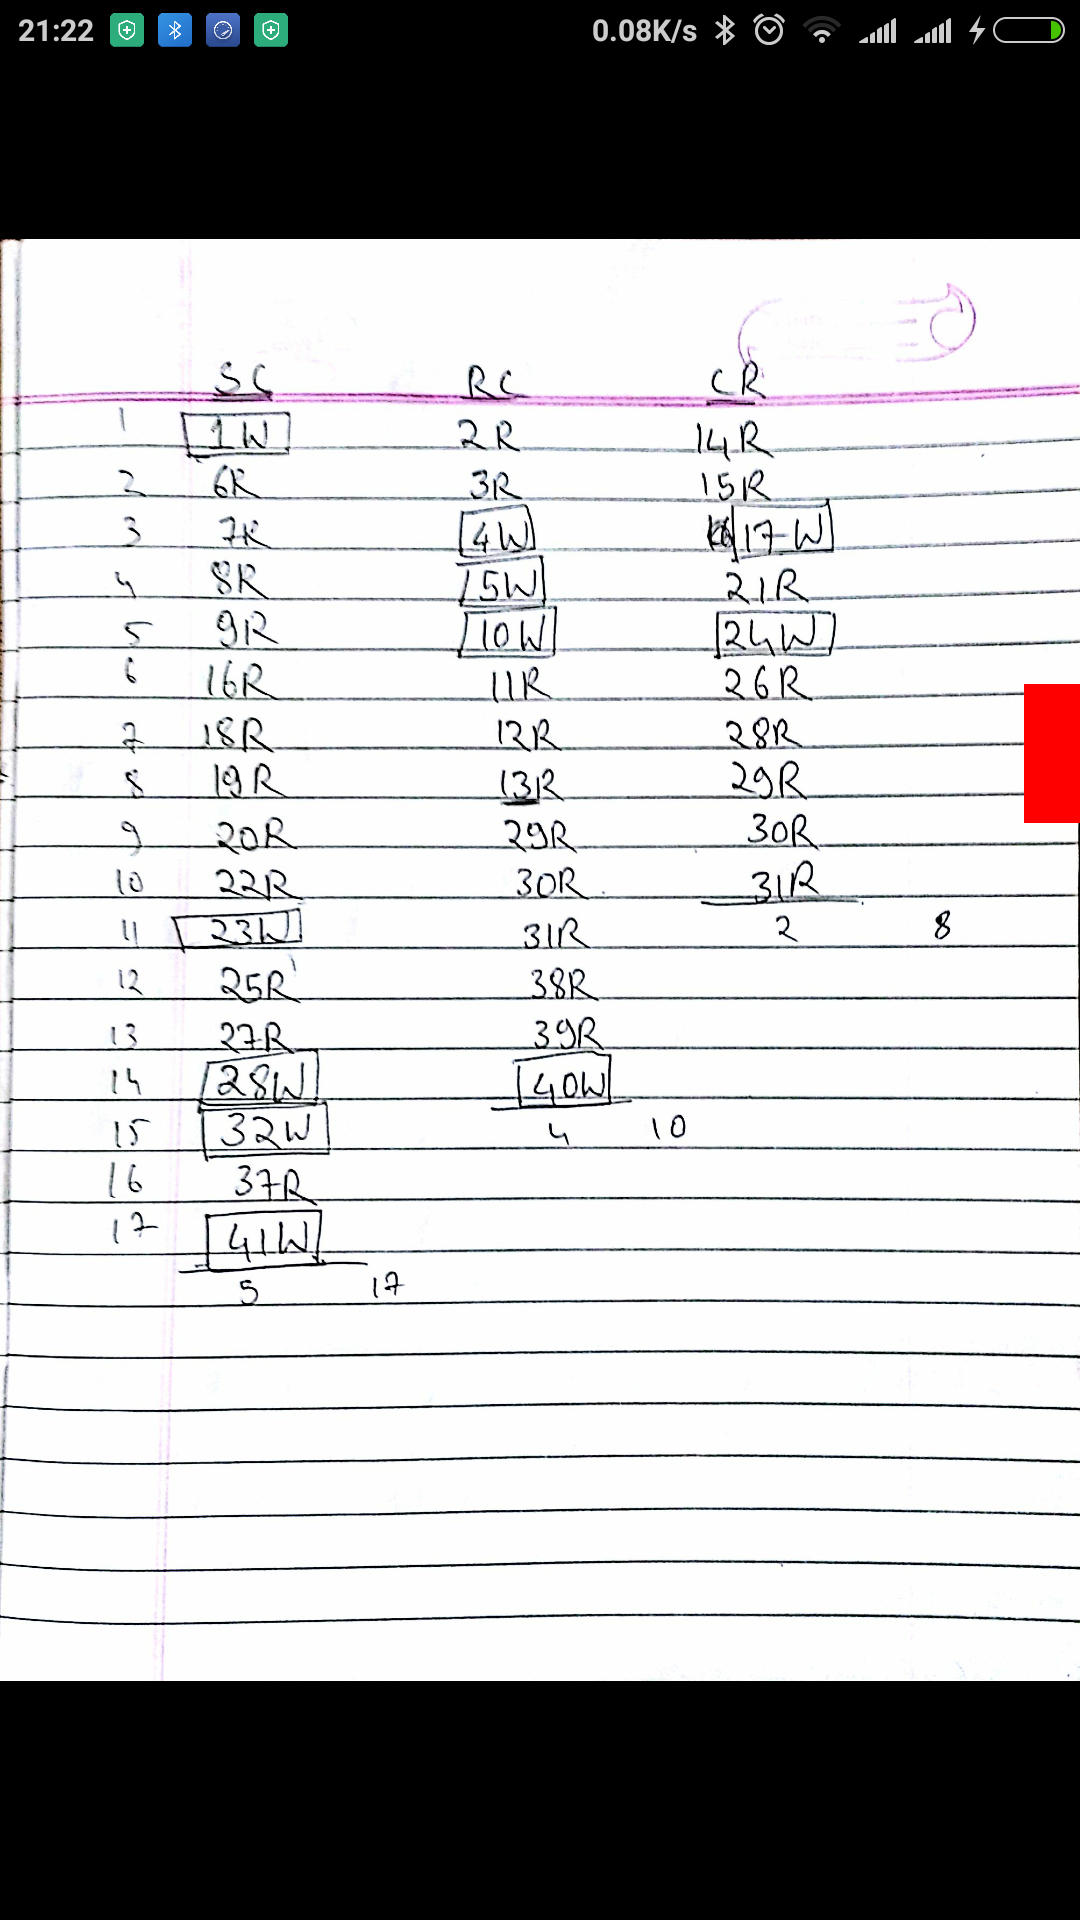 21:22 0.08K/s
SC RC CR
1 1W 2R 14R
2 6R 3R 15R
3 7R 4W 17-W
4 8R 5W 21R
5 9R 10W 24W
6 16R 11R 26R
7 18R 12R 28R
8 19R 13R 29R
9 20R 29R 30R
10 22R 30R 31R
11 23W 31R 2 8
12 25R 38R
13 27R 39R
14 28W 40W
15 32W 4 10
16 37R
17 41W
5 17